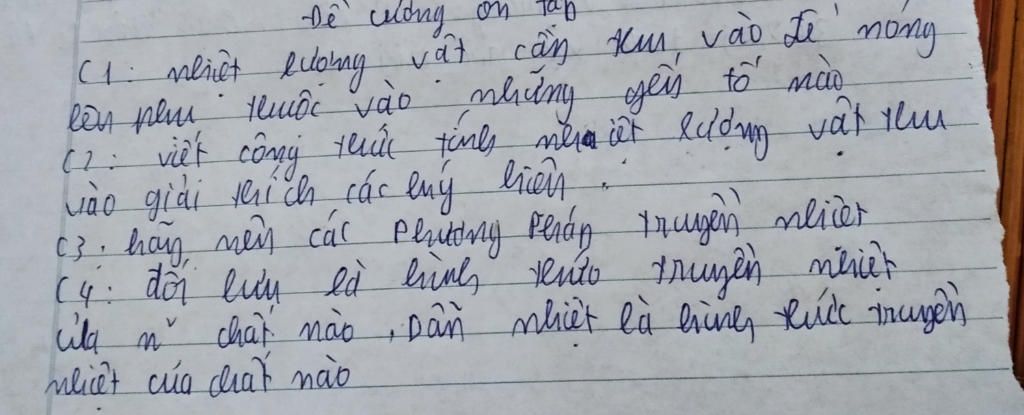 Đề cương ôn tập
C1: nhiệt lượng vật cần thu vào để nóng
lên phụ thuộc vào những yếu tố nào
C2: viết công thức tính nhiệt lượng vật thu
vào giải thích các ký hiệu.
C3. hãy nêu các phương pháp truyền nhiệt
C4: đối lưu là hình thức truyền nhiệt
của chất nào, Dẫn nhiệt là hình thức truyền
nhiệt của chất nào